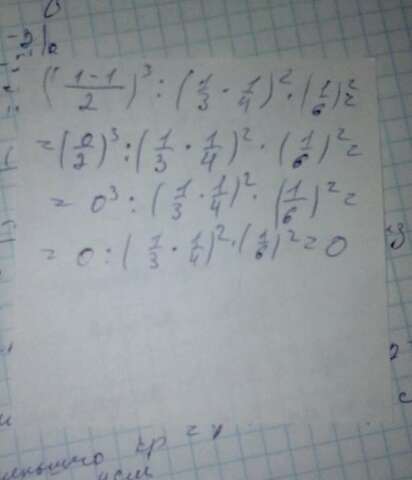 ((1-1)/2)³ : (1/3 · 1/4)² · (1/6)² =
= (0/2)³ : (1/3 · 1/4)² · (1/6)² =
= 0³ : (1/3 · 1/4)² · (1/6)² =
= 0 : (1/3 · 1/4)² · (1/6)² = 0